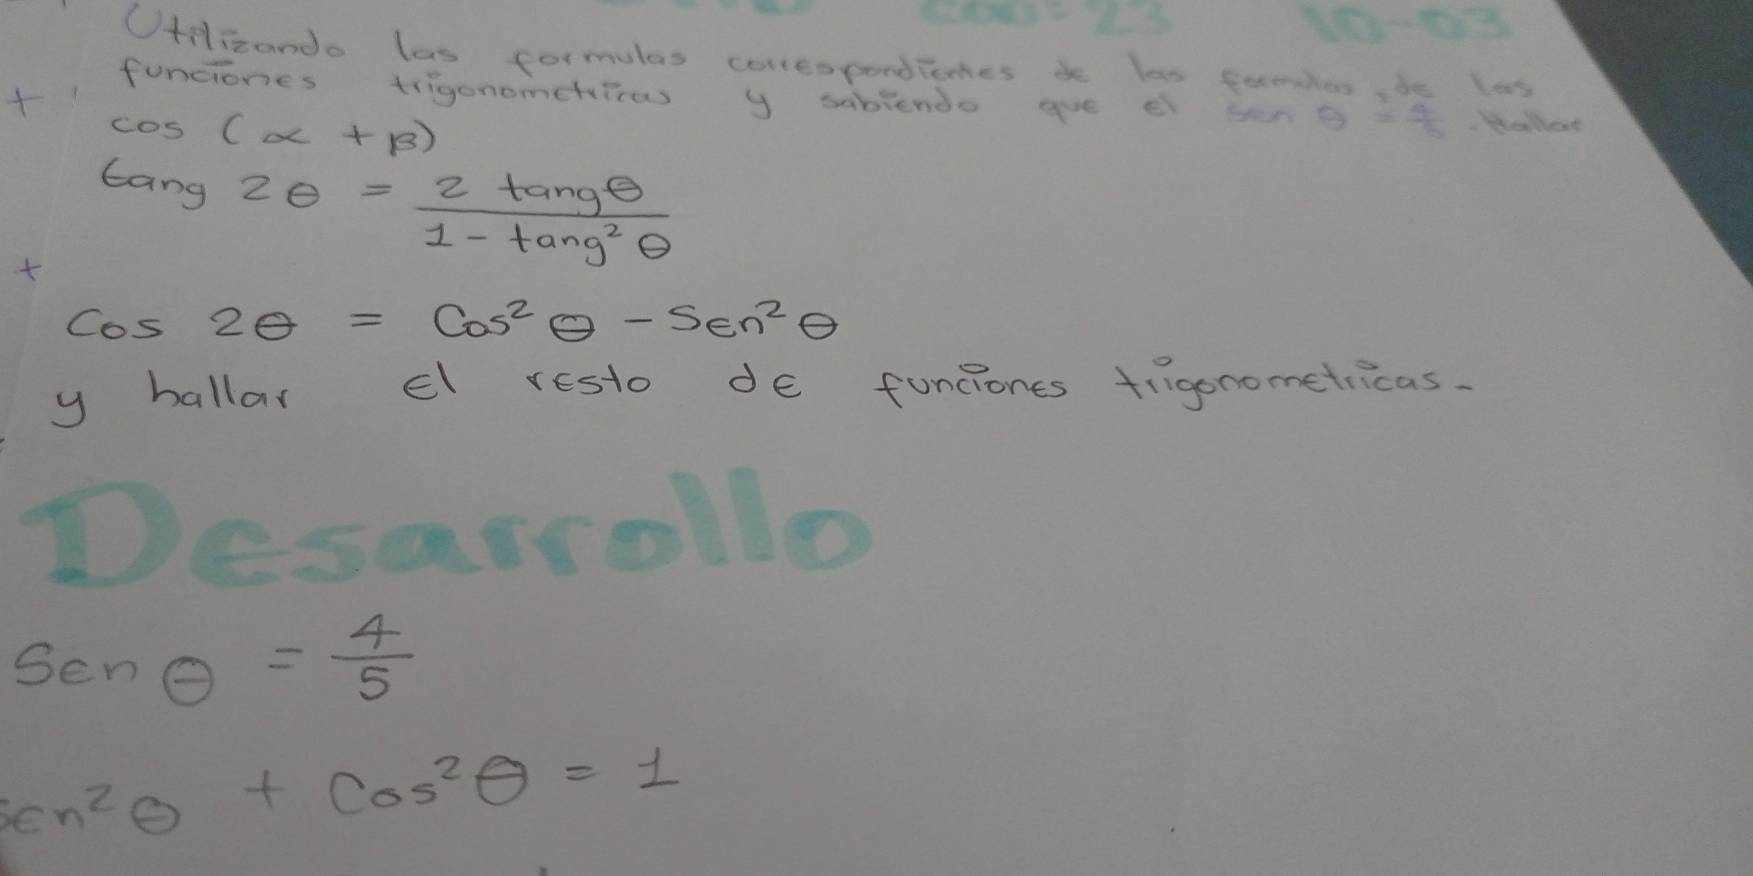 10-03
Utilizando las formulas correspondientes de las formulas, de las
funciones trigonometricas y sabiendo que el sen θ = 4/5. Hallar
cos (α + β)
tang 2θ = 2 tang θ / 1 - tang² θ
Cos 2θ = Cos² θ - Sen² θ
y hallar el resto de funciones trigonometricas.
Desarrollo
Sen θ = 4/5
Sen² θ + Cos² θ = 1